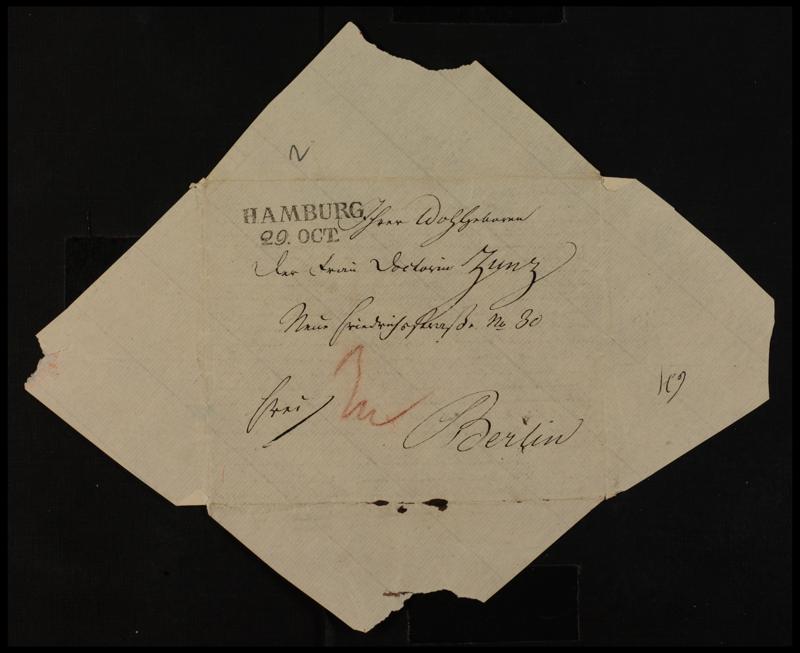 2
HAMBURG
29. OCT.
Ihrer Wohlgeboren
der Frau Doctorin Zunz
Neue Friedrichsstraße No 30
frei
Berlin